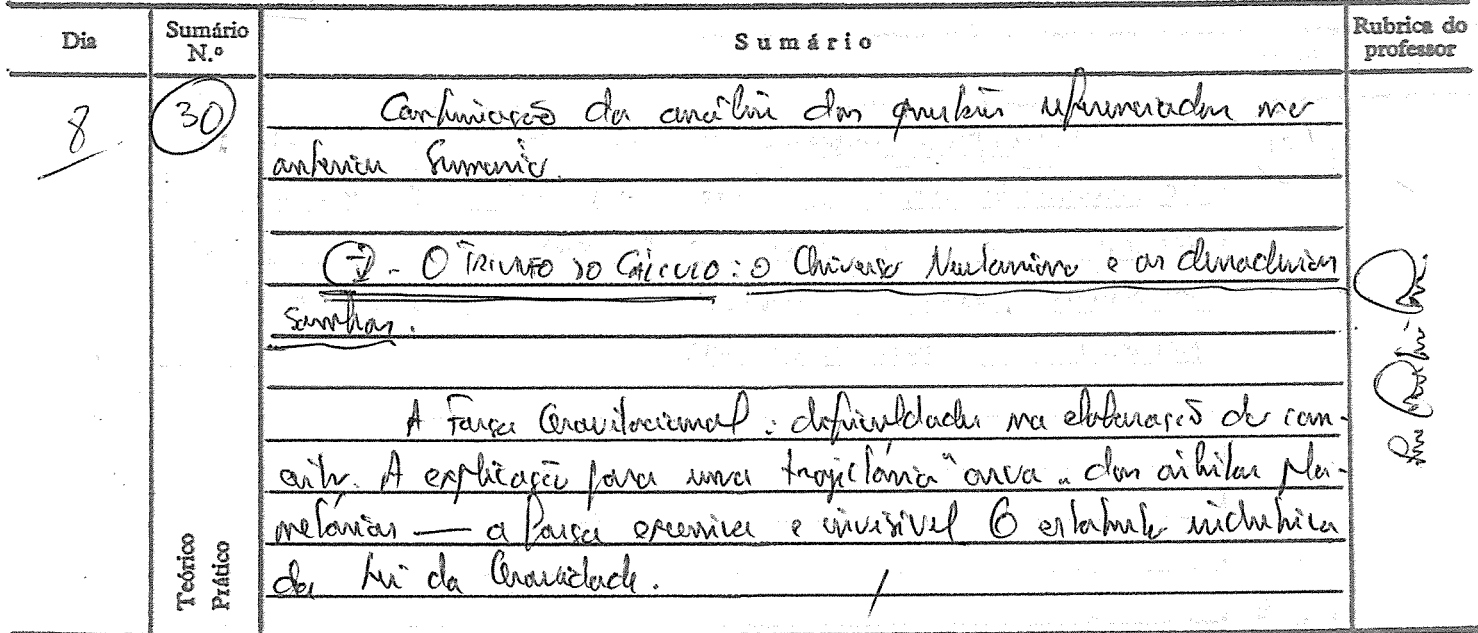 Dia
Sumário N.º
Sumário
Rubrica do professor
8
30
Continuação da análise das questões referenciadas no
anterior Sumário.
O TRIUNFO DO CÁLCULO: O Universo Newtoniano e as
sombras.
A Força Gravitacional: dificuldades na elaboração do con-
ceito. A explicação para uma trajectória "curva" das órbitas pla-
netárias — a força e invisível O estatuto
da Lei da Gravidade.
Teórico
Prático